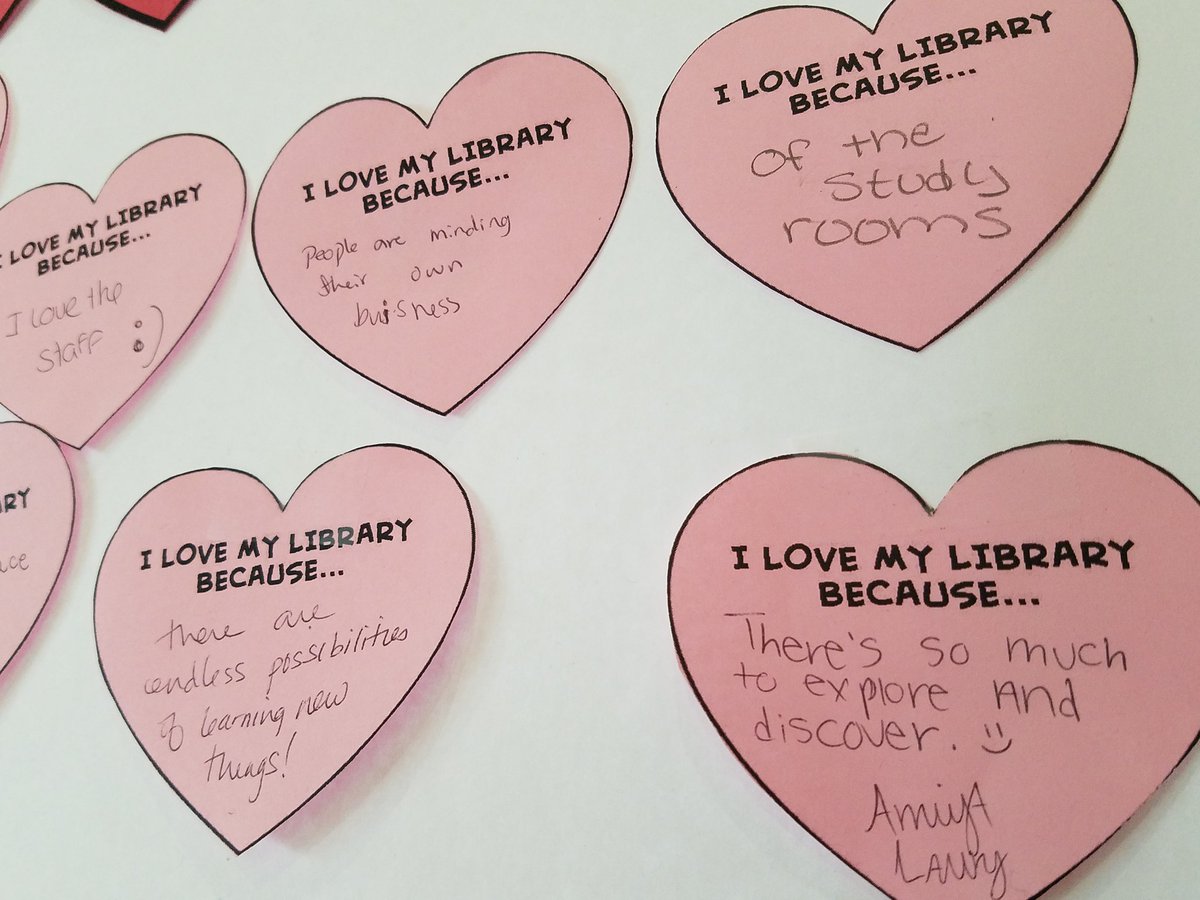 I LOVE MY LIBRARY
BECAUSE...
I love the
staff :)
I LOVE MY LIBRARY
BECAUSE...
People are minding
their own
buisness
I LOVE MY LIBRARY
BECAUSE...
of the
study
rooms
I LOVE MY LIBRARY
BECAUSE...
there are
endless possibilities
of learning new
things!
I LOVE MY LIBRARY
BECAUSE...
There's so much
to explore And
discover.
AmiyA